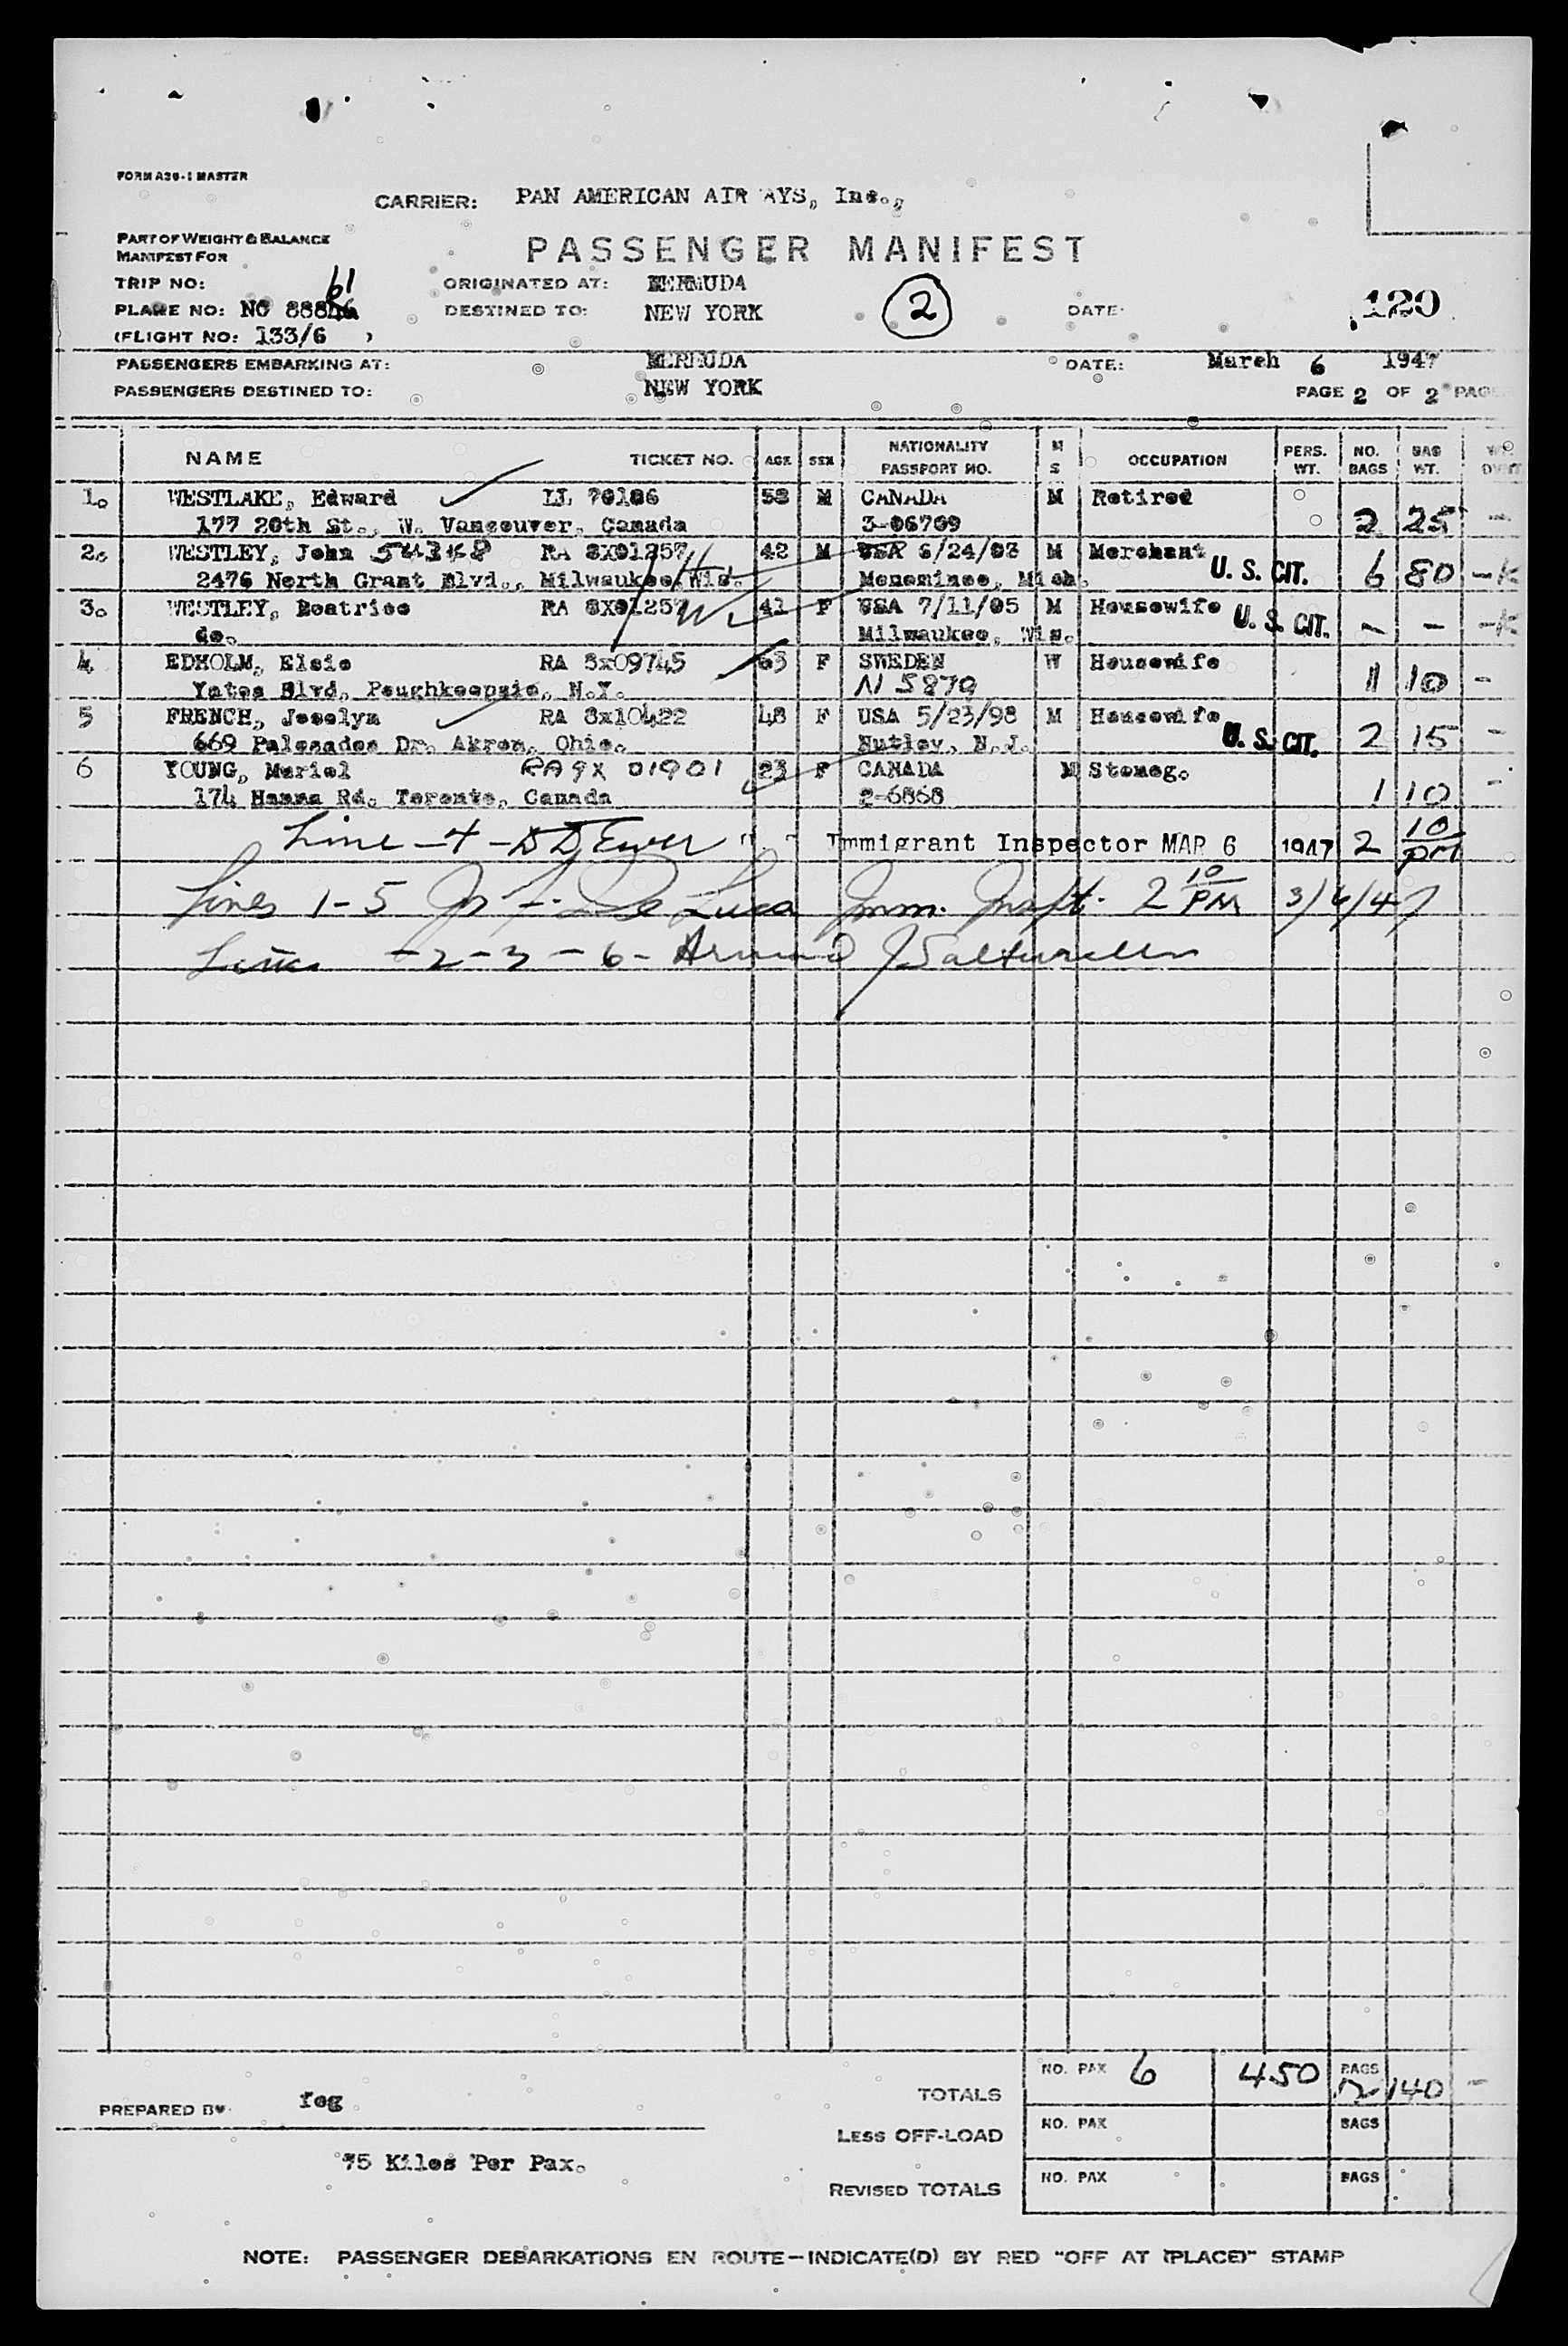 FORM A26-1 MASTER
CARRIER: PAN AMERICAN AIR AYS, Inc.,
PART OF WEIGHT & BALANCE
MANIFEST FOR
PASSENGER MANIFEST
TRIP NO: ORIGINATED AT: BERMUDA
PLANE NO: NC 888 61 DESTINED TO: NEW YORK 2 DATE: 120
(FLIGHT NO: 133/6 )
PASSENGERS EMBARKING AT: BERMUDA DATE: March 6 1947
PASSENGERS DESTINED TO: NEW YORK PAGE 2 OF 2 PAGES
NAME TICKET NO. AGE SEX NATIONALITY PASSPORT NO. M S OCCUPATION PERS. WT. NO. BAGS BAG WT.
1. WESTLAKE, Edward LL 70186 58 M CANADA M Retired
177 20th St., W. Vancouver, Canada 3-06709 2 25 -
2. WESTLEY, John 54348 RA 8X01257 42 M USA 6/24/03 M Merchant
2476 North Grant Blvd., Milwaukee, Wis. Menominee, Mich. U. S. CIT. 6 80 -
3. WESTLEY, Beatrice RA 8X01257 41 F USA 7/11/05 M Housewife
do. Milwaukee, Wis. U. S. CIT. - - -
4 EDHOLM, Elsie RA 8x09745 63 F SWEDEN W Housewife
Yates Blvd, Poughkeepsie, N.Y. N 5879 1 10 -
5 FRENCH, Joselyn RA 8x10422 48 F USA 5/23/98 M Housewife
669 Palesades Dr. Akron, Ohio. Nutley, N.J. U. S. CIT. 2 15 -
6 YOUNG, Muriel RA 9X 01901 23 F CANADA M Stenog.
174 Hanna Rd. Toronto, Canada 2-6868 1 10 -
Line - 4 - Immigrant Inspector MAR 6 1947 2 10 PM
Lines 1-5 De Luca Imm. Inspt. 2 10 PM 3/6/47
Lines - 2 - 3 - 6 -
TOTALS NO. PAX 6 450 BAGS 12 140 -
PREPARED BY feg
LESS OFF-LOAD NO. PAX BAGS
75 Kilos Per Pax.
REVISED TOTALS NO. PAX BAGS
NOTE: PASSENGER DEBARKATIONS EN ROUTE-INDICATE(D) BY RED "OFF AT (PLACE)" STAMP